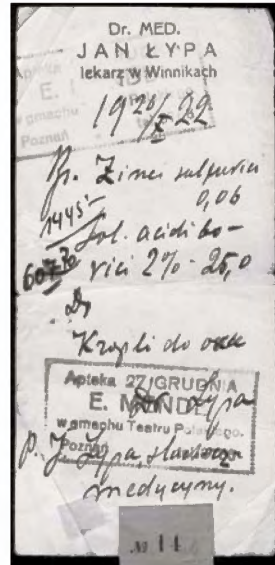 Dr. MED.
JAN ŁYPA
lekarz w Winnikach
Apteka
E.
w gmachu
Poznań
19 20/X 22
Rp. Zinci sulfurici
0,06
1445
Sol. acidi bo-
rici 2% - 25,0
Kropli do
Apteka 27 GRUDNIA
E. MANDEL
Dr Łypa
w gmachu Teatru Polskiego.
Poznań
p. J. Łypa, słuchacz
medycyny.
№ 14